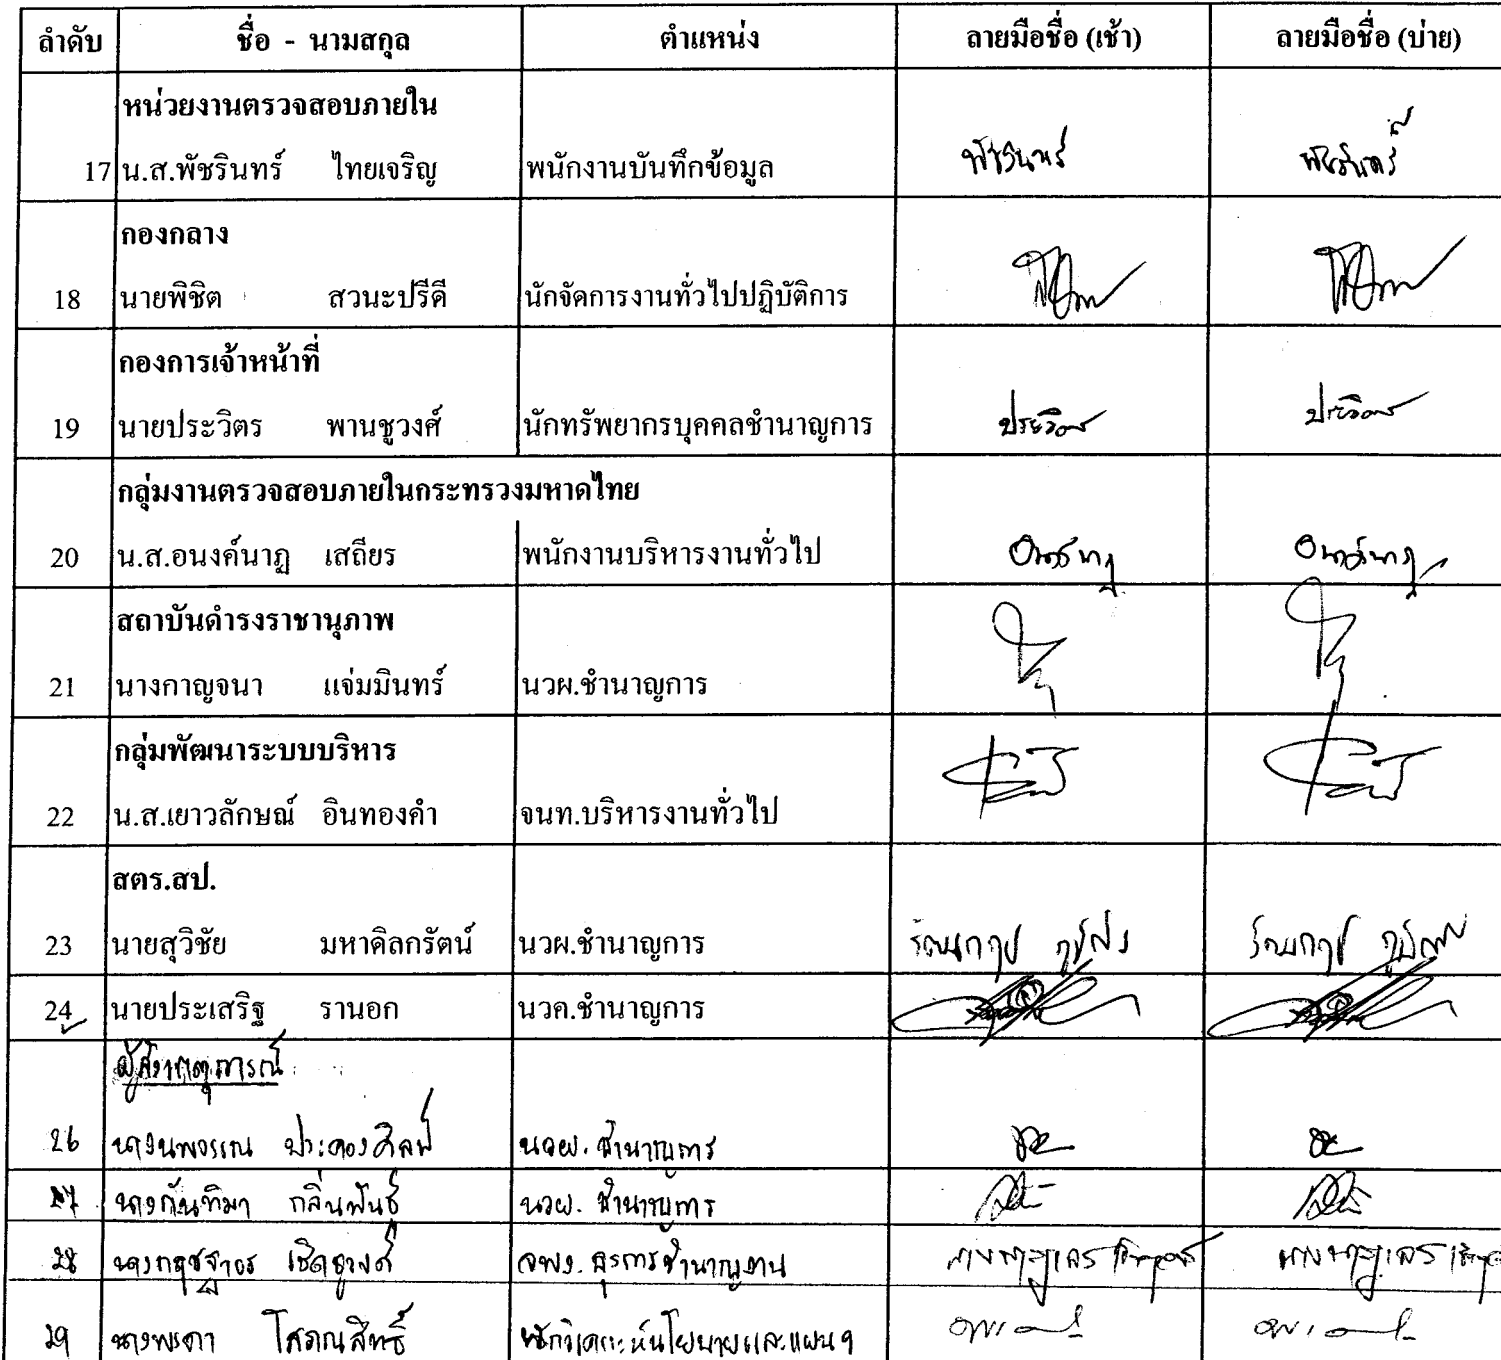 ลำดับ ชื่อ - นามสกุล ตำแหน่ง ลายมือชื่อ (เช้า) ลายมือชื่อ (บ่าย)
หน่วยงานตรวจสอบภายใน
17 น.ส.พัชรินทร์ ไทยเจริญ พนักงานบันทึกข้อมูล พัชรินทร์ พัชรินทร์
กองกลาง
18 นายพิชิต สวนะปรีดี นักจัดการงานทั่วไปปฏิบัติการ
กองการเจ้าหน้าที่
19 นายประวิตร พานชูวงศ์ นักทรัพยากรบุคคลชำนาญการ ประวิตร ประวิตร
กลุ่มงานตรวจสอบภายในกระทรวงมหาดไทย
20 น.ส.อนงค์นาฏ เสถียร พนักงานบริหารงานทั่วไป อนงค์นาฏ อนงค์นาฏ
สถาบันดำรงราชานุภาพ
21 นางกาญจนา แจ่มมินทร์ นวผ.ชำนาญการ
กลุ่มพัฒนาระบบบริหาร
22 น.ส.เยาวลักษณ์ อินทองคำ จนท.บริหารงานทั่วไป
สตร.สป.
23 นายสุวิชัย มหาดิลกรัตน์ นวผ.ชำนาญการ
24 นายประเสริฐ รานอก นวค.ชำนาญการ
ผู้สังเกตุการณ์
26 นางนพวรรณ ประคองศิลป์ นวผ. ชำนาญการ
27 นางกันทิมา กลิ่นพันธุ์ นวผ. ชำนาญการ
28 เชิดชูวงศ์ จพง. ธุรการชำนาญงาน
29 โสภณสิทธิ์ นักวิเคราะห์นโยบายและแผนฯ